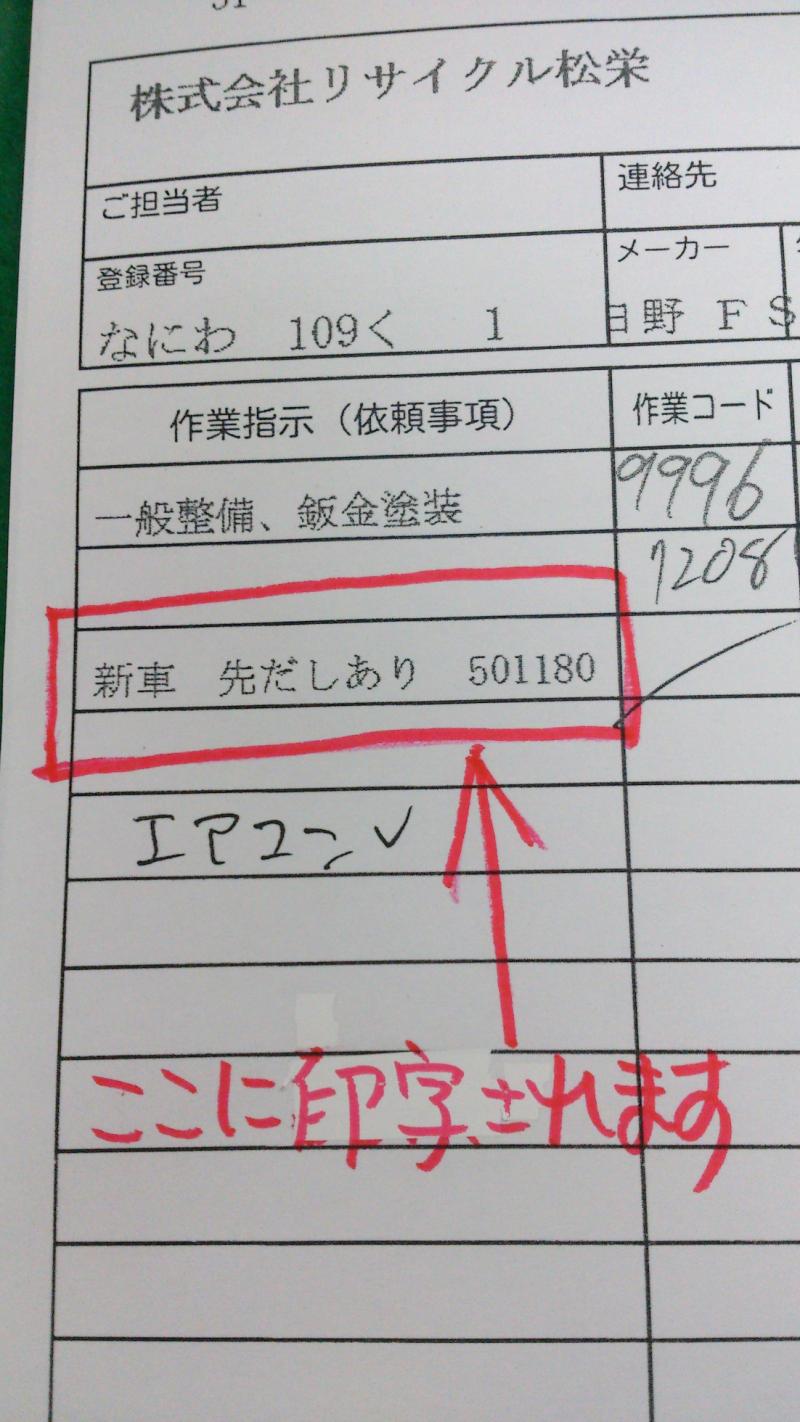 株式会社リサイクル松栄
ご担当者
連絡先
登録番号
メーカー
なにわ 109く 1
日野 FS
作業指示（依頼事項）
作業コード
一般整備、鈑金塗装
9996
7208
新車 先だしあり 501180
エアコン✓
ここに印字されます